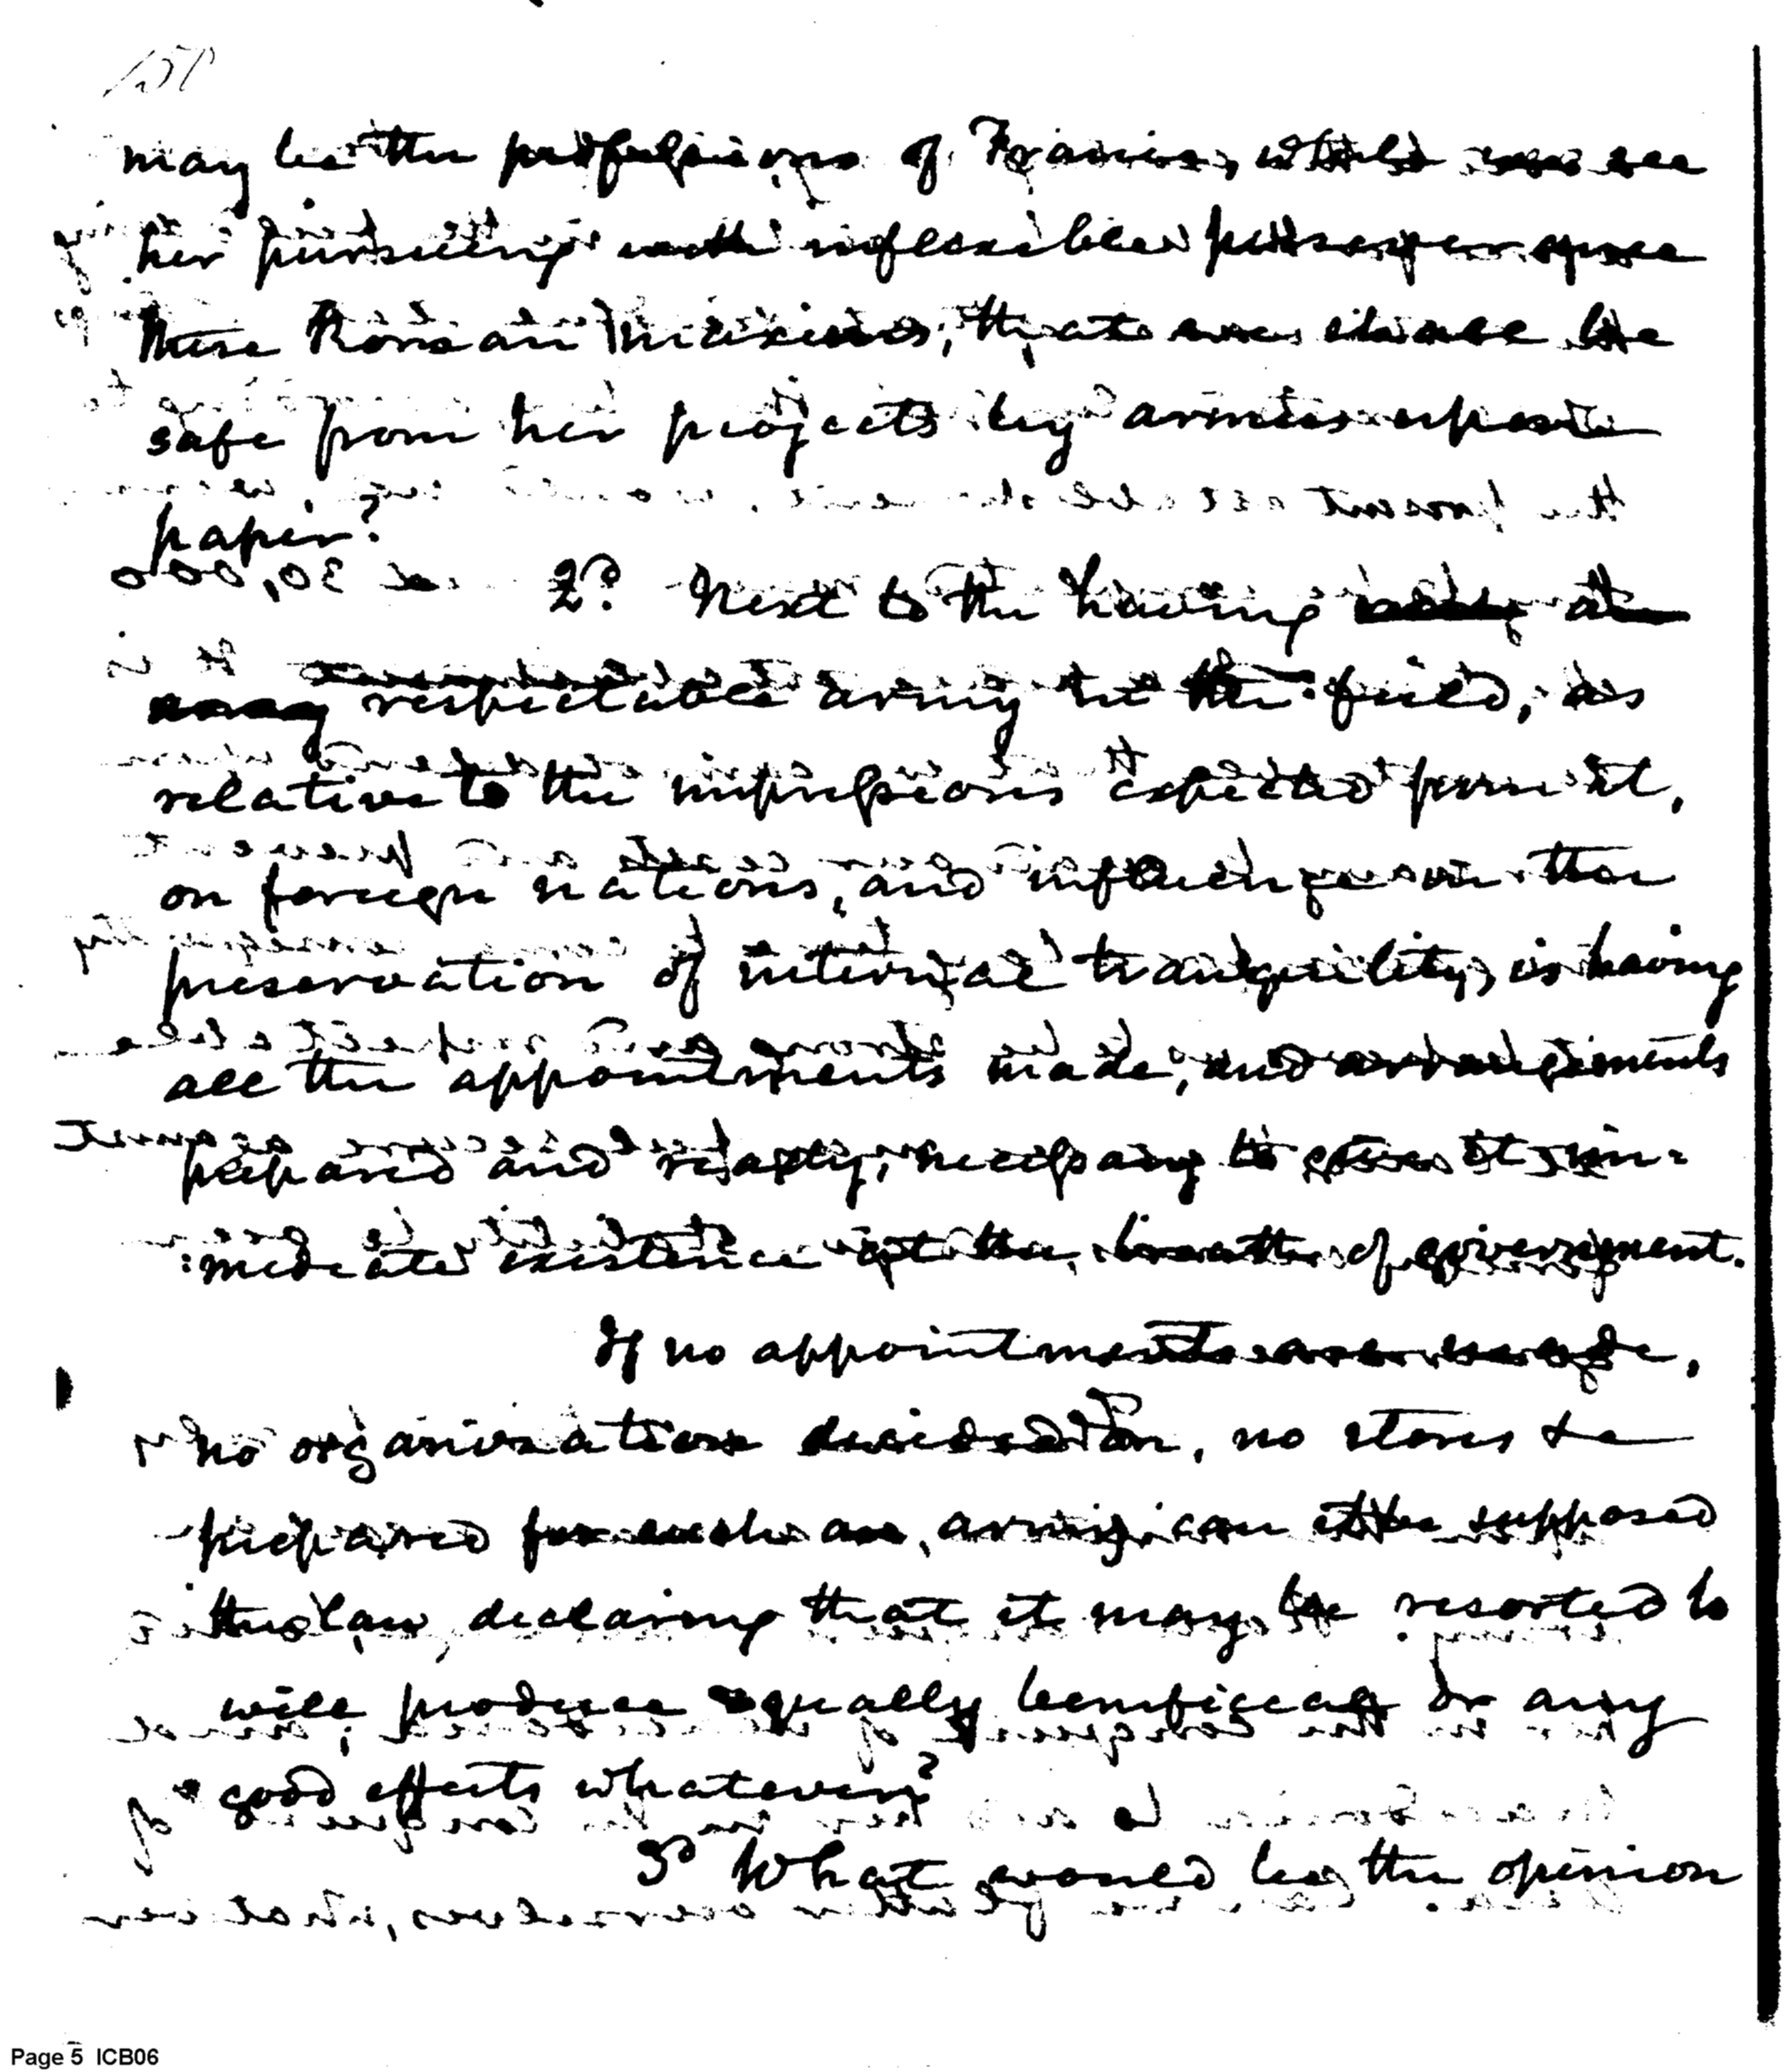 may be the professions of France, whilst we see
her pursuing with inflexible perseverance
these Roman maxims, that we shall be
safe from her projects by armies upon
paper?
2d. Next to the having a
respectable army in the field, as
relative to the impressions expected from it,
on foreign nations, and influence on the
preservation of internal tranquility, is having
all the appointments made, and arrangements
prepared and ready, necessary to give it im=
:mediate existence at the breath of government.
If no appointments are made,
no organization decided on, no stores &c
prepared for such an army can it be supposed
the law declaring that it may be resorted to
will produce equally beneficial or any
good effects whatever?
3d What would be the opinion
Page 5 ICB06